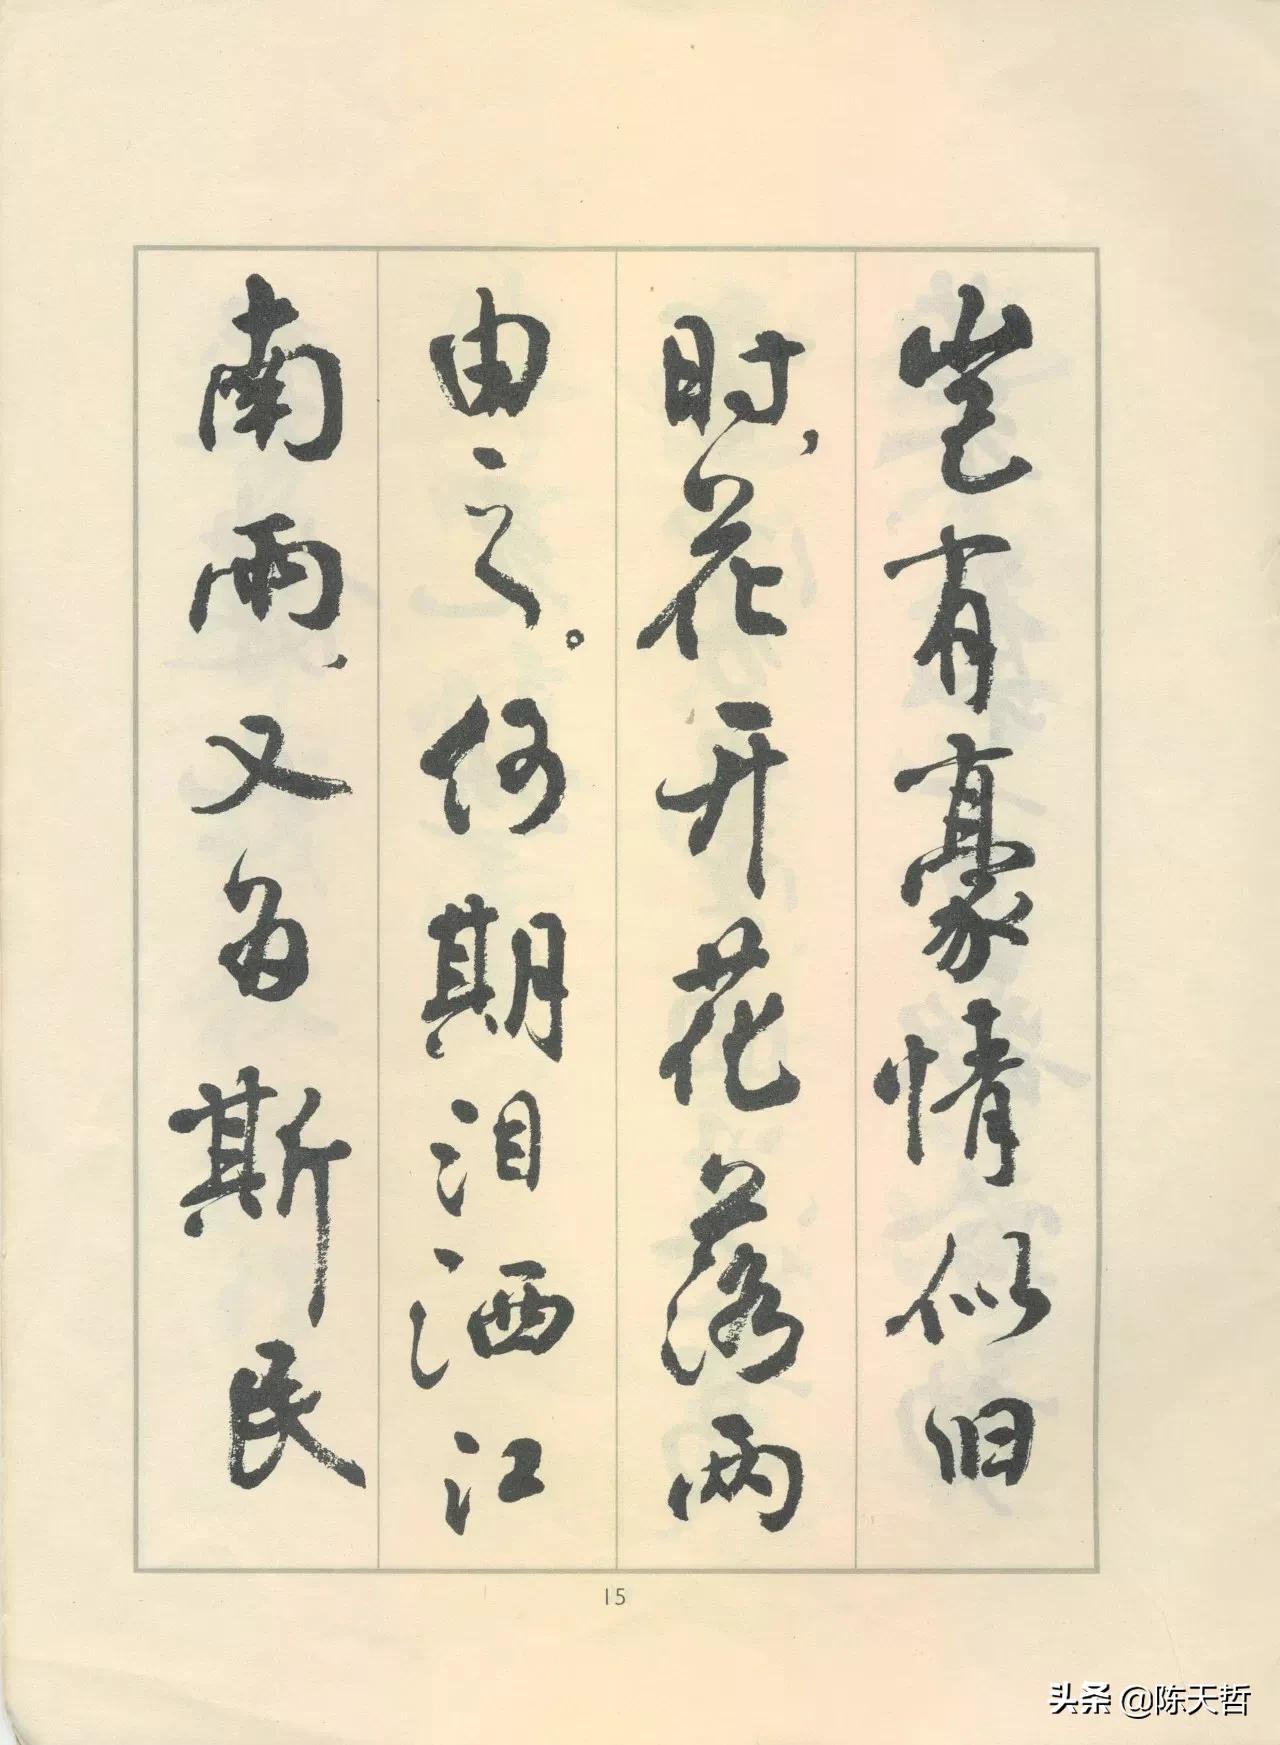 岂有豪情似旧
时，花开花落两
由之。何期泪洒江
南雨，又为斯民
15
头条 @陈天哲